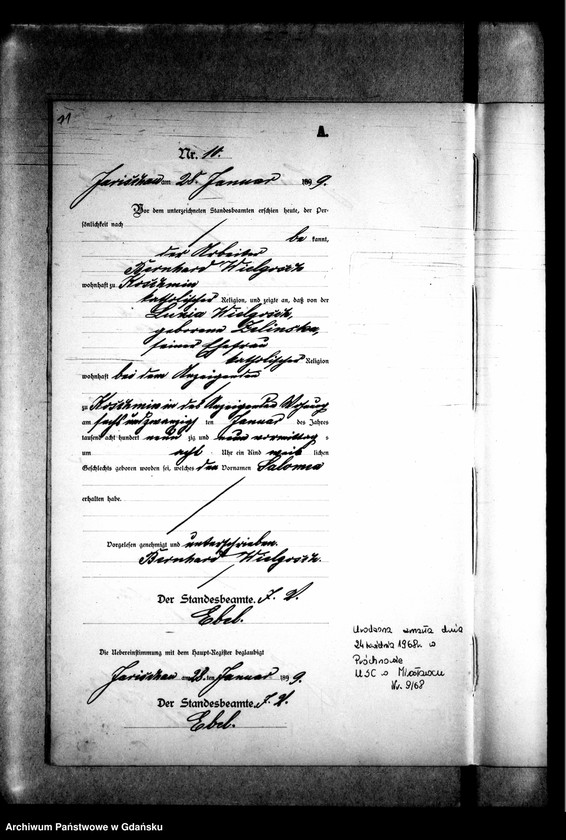 A.
Nr. 10.
Jarischau am 28. Januar 1899.
Vor dem unterzeichneten Standesbeamten erschien heute, der Per-
sönlichkeit nach
be kannt,
der Arbeiter
Bernhard Wielgosch
wohnhaft zu Koschmin
katholischer Religion, und zeigte an, daß von der
Luzia Wielgosch,
geborene Zelinska,
seiner Ehefrau
katholischer Religion
wohnhaft bei dem Anzeigenden
zu Koschmin in des Anzeigenden Wohnung
am sechs und zwanzig ten Januar des Jahres
tausend acht hundert neun zig und neun vormittag s
um acht Uhr ein Kind weib lichen
Geschlechts geboren worden sei, welches den Vornamen Salomea
erhalten habe.
Vorgelesen genehmigt und unterschrieben.
Bernhard Wielgosch.
Der Standesbeamte. I. V.
Ebel.
Die Uebereinstimmung mit dem Haupt-Register beglaubigt
Jarischau am 28. ten Januar 1899.
Der Standesbeamte. I. V.
Ebel.
Urodzona zmarła dnia
24 kwietnia 1968r. w
Próchnowie
USC w
Nr. 9/68
Archiwum Państwowe w Gdańsku